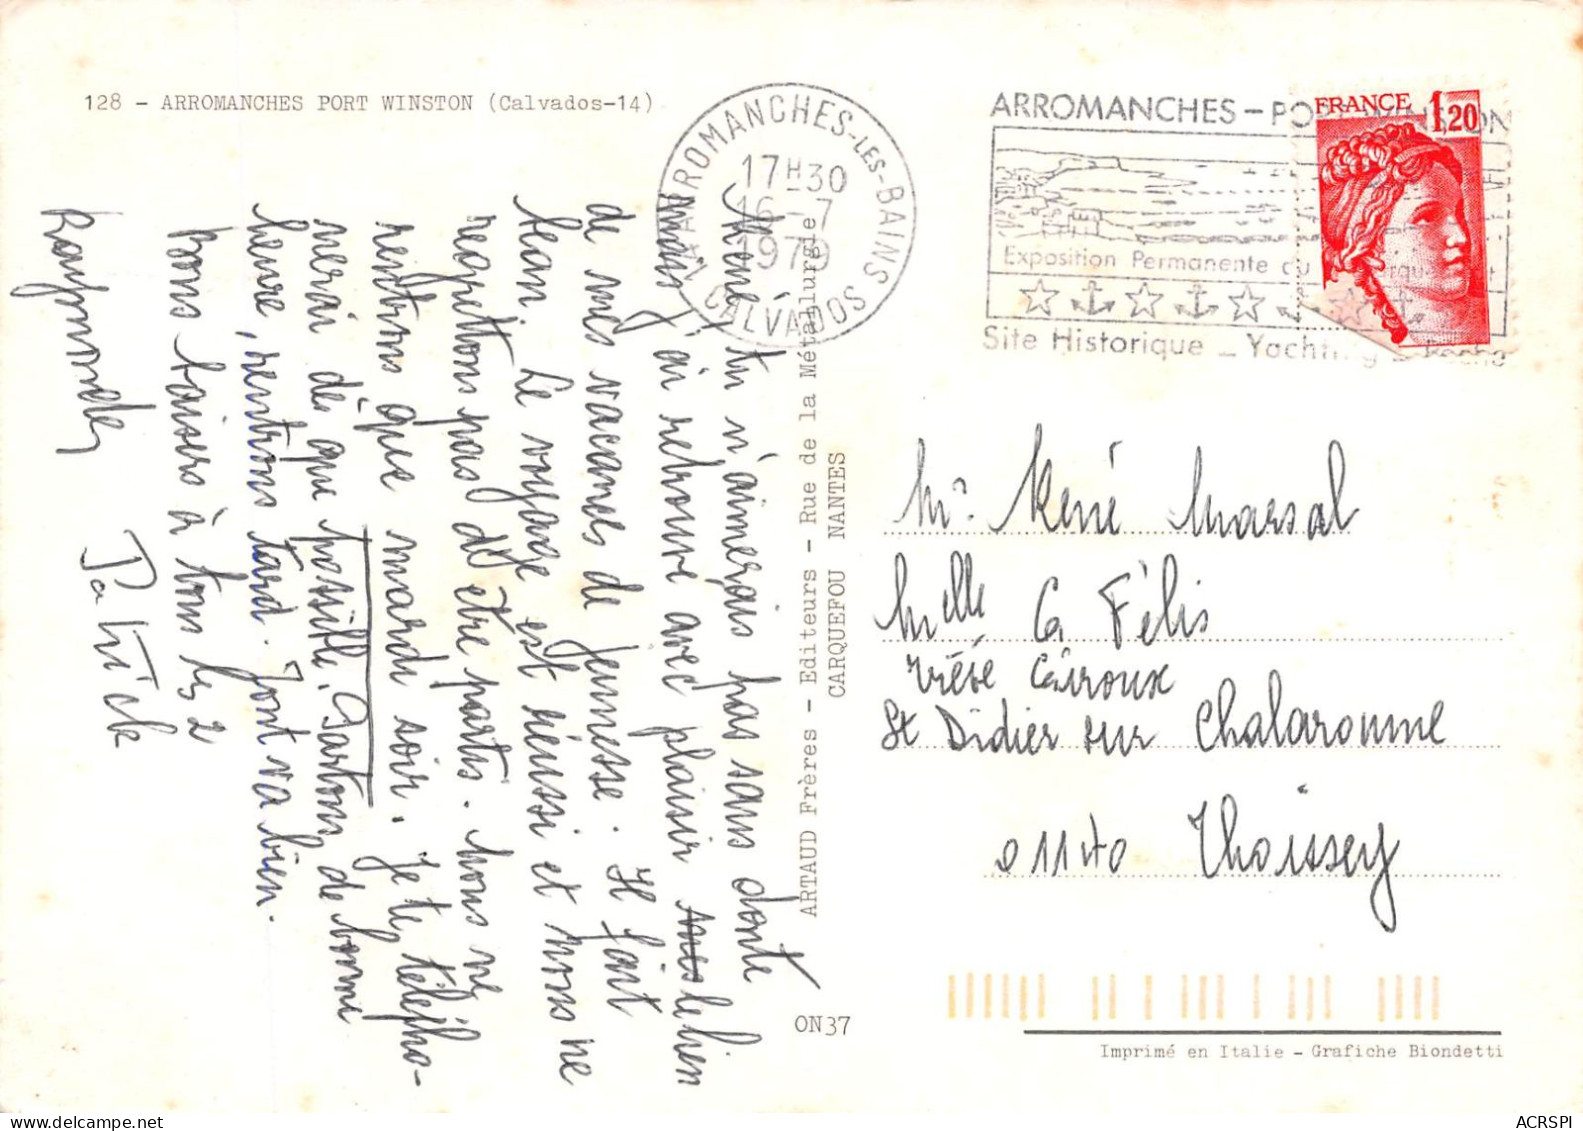 128 - ARROMANCHES PORT WINSTON (Calvados-14)
14 ARROMANCHES-LES-BAINS
17H30
16-7
1979
CALVADOS
ARROMANCHES - PORT WINSTON
Exposition Permanente du
Site Historique - Yachting - Pêche
FRANCE 1,20
tu n'aimerais pas sans doute
mais j'ai retrouvé avec plaisir le lien
de mes vacances de jeunesse. Il fait
beau. Le voyage est réussi et nous ne
regrettons pas d'être partis. Nous ne
rentrons que mardi soir. Je te télépho-
nerai dès que possible. Partons de bonne
heure, rentrons tard. Tout va bien.
Bons baisers à tous les 2
Raymonde
Patrick
ARTAUD Frères - Editeurs - Rue de la Métallurgie
CARQUEFOU NANTES
ON37
Mr René Marsal
Melle G Félis
St Didier sur Chalaronne
01140 Thoissey
Imprimé en Italie - Grafiche Biondetti
ACRSPI